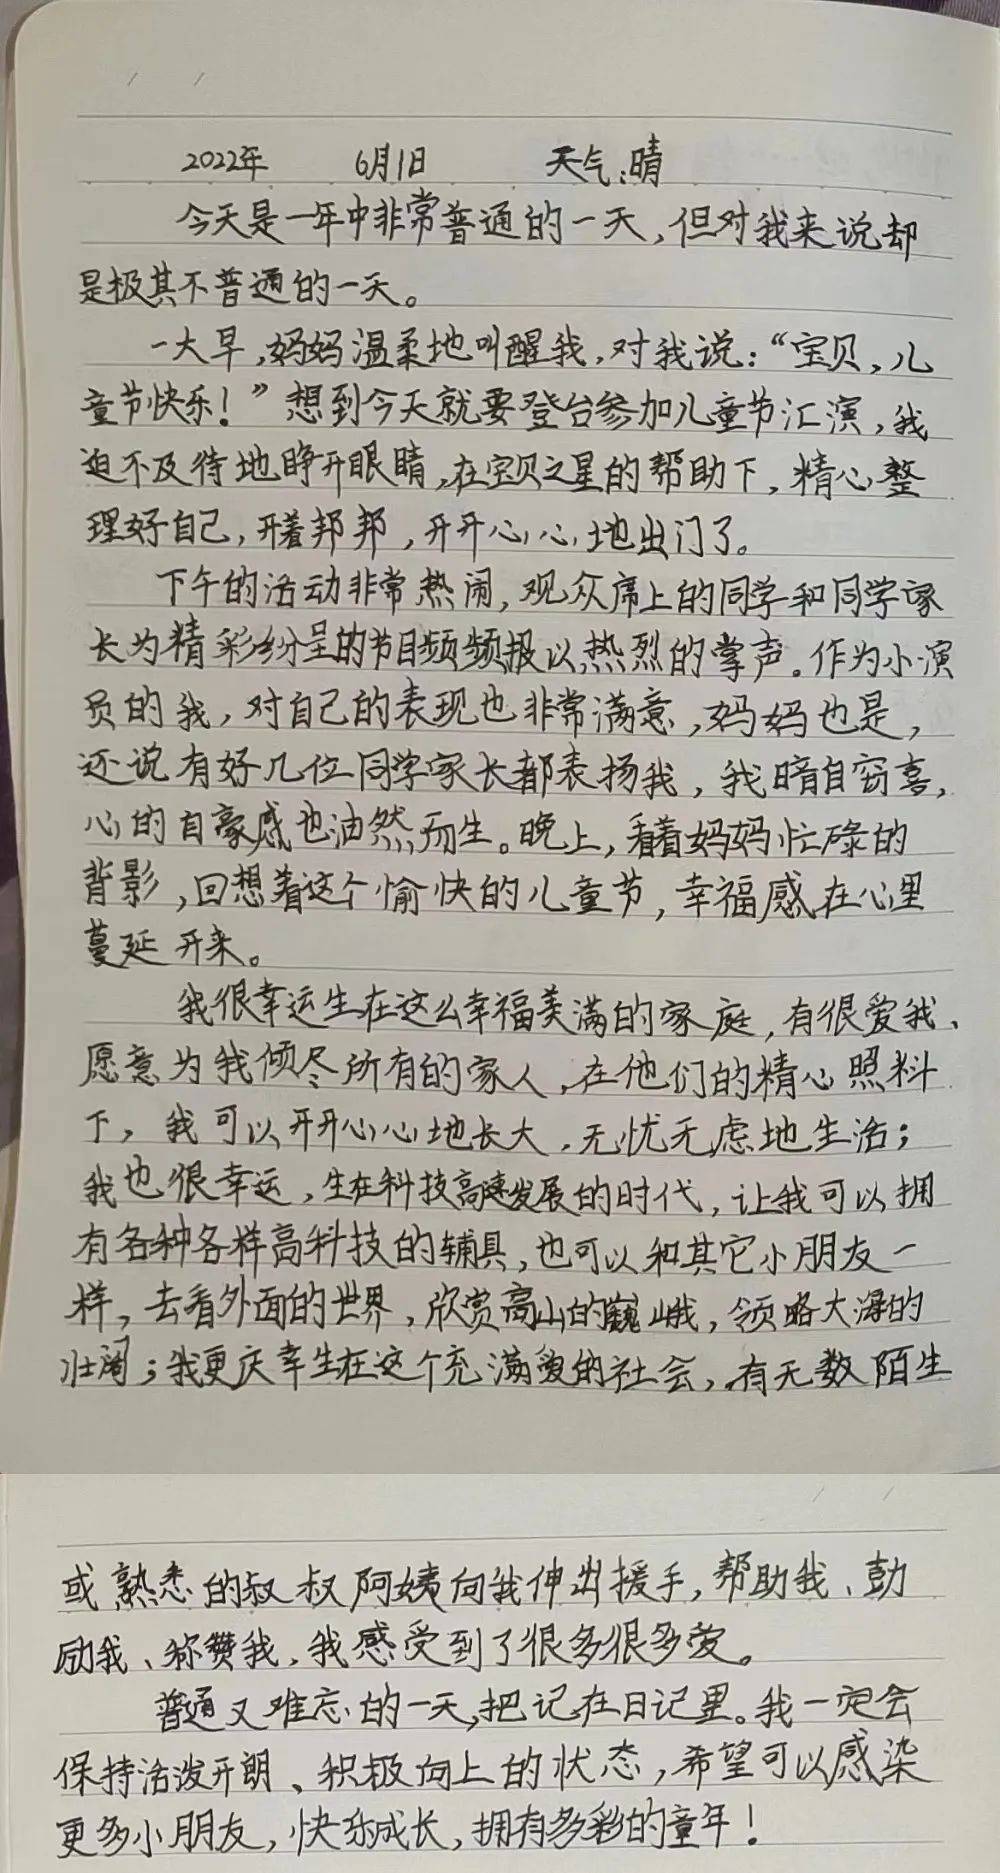 2022年 6月1日 天气:晴
今天是一年中非常普通的一天,但对我来说却
是极其不普通的一天。
一大早,妈妈温柔地叫醒我,对我说:“宝贝,儿
童节快乐!”想到今天就要登台参加儿童节汇演,我
迫不及待地睁开眼睛,在宝贝之星的帮助下,精心整
理好自己,开着邦邦,开开心心地出门了。
下午的活动非常热闹,观众席上的同学和同学家
长为精彩纷呈的节目频频报以热烈的掌声。作为小演
员的我,对自己的表现也非常满意,妈妈也是,
还说有好几位同学家长都表扬我,我暗自窃喜,
心的自豪感也油然而生。晚上,看着妈妈忙碌的
背影,回想着这个愉快的儿童节,幸福感在心里
蔓延开来。
我很幸运生在这么幸福美满的家庭,有很爱我、
愿意为我倾尽所有的家人,在他们的精心照料
下,我可以开开心心地长大,无忧无虑地生活;
我也很幸运,生在科技高速发展的时代,让我可以拥
有各种各样高科技的辅具,也可以和其它小朋友一
样,去看外面的世界,欣赏高山的巍峨,领略大海的
壮阔;我更庆幸生在这个充满爱的社会,有无数陌生
或熟悉的叔叔阿姨向我伸出援手,帮助我、鼓
励我、称赞我,我感受到了很多很多爱。
普通又难忘的一天,把记在日记里。我一定会
保持活泼开朗、积极向上的状态,希望可以感染
更多小朋友,快乐成长,拥有多彩的童年!